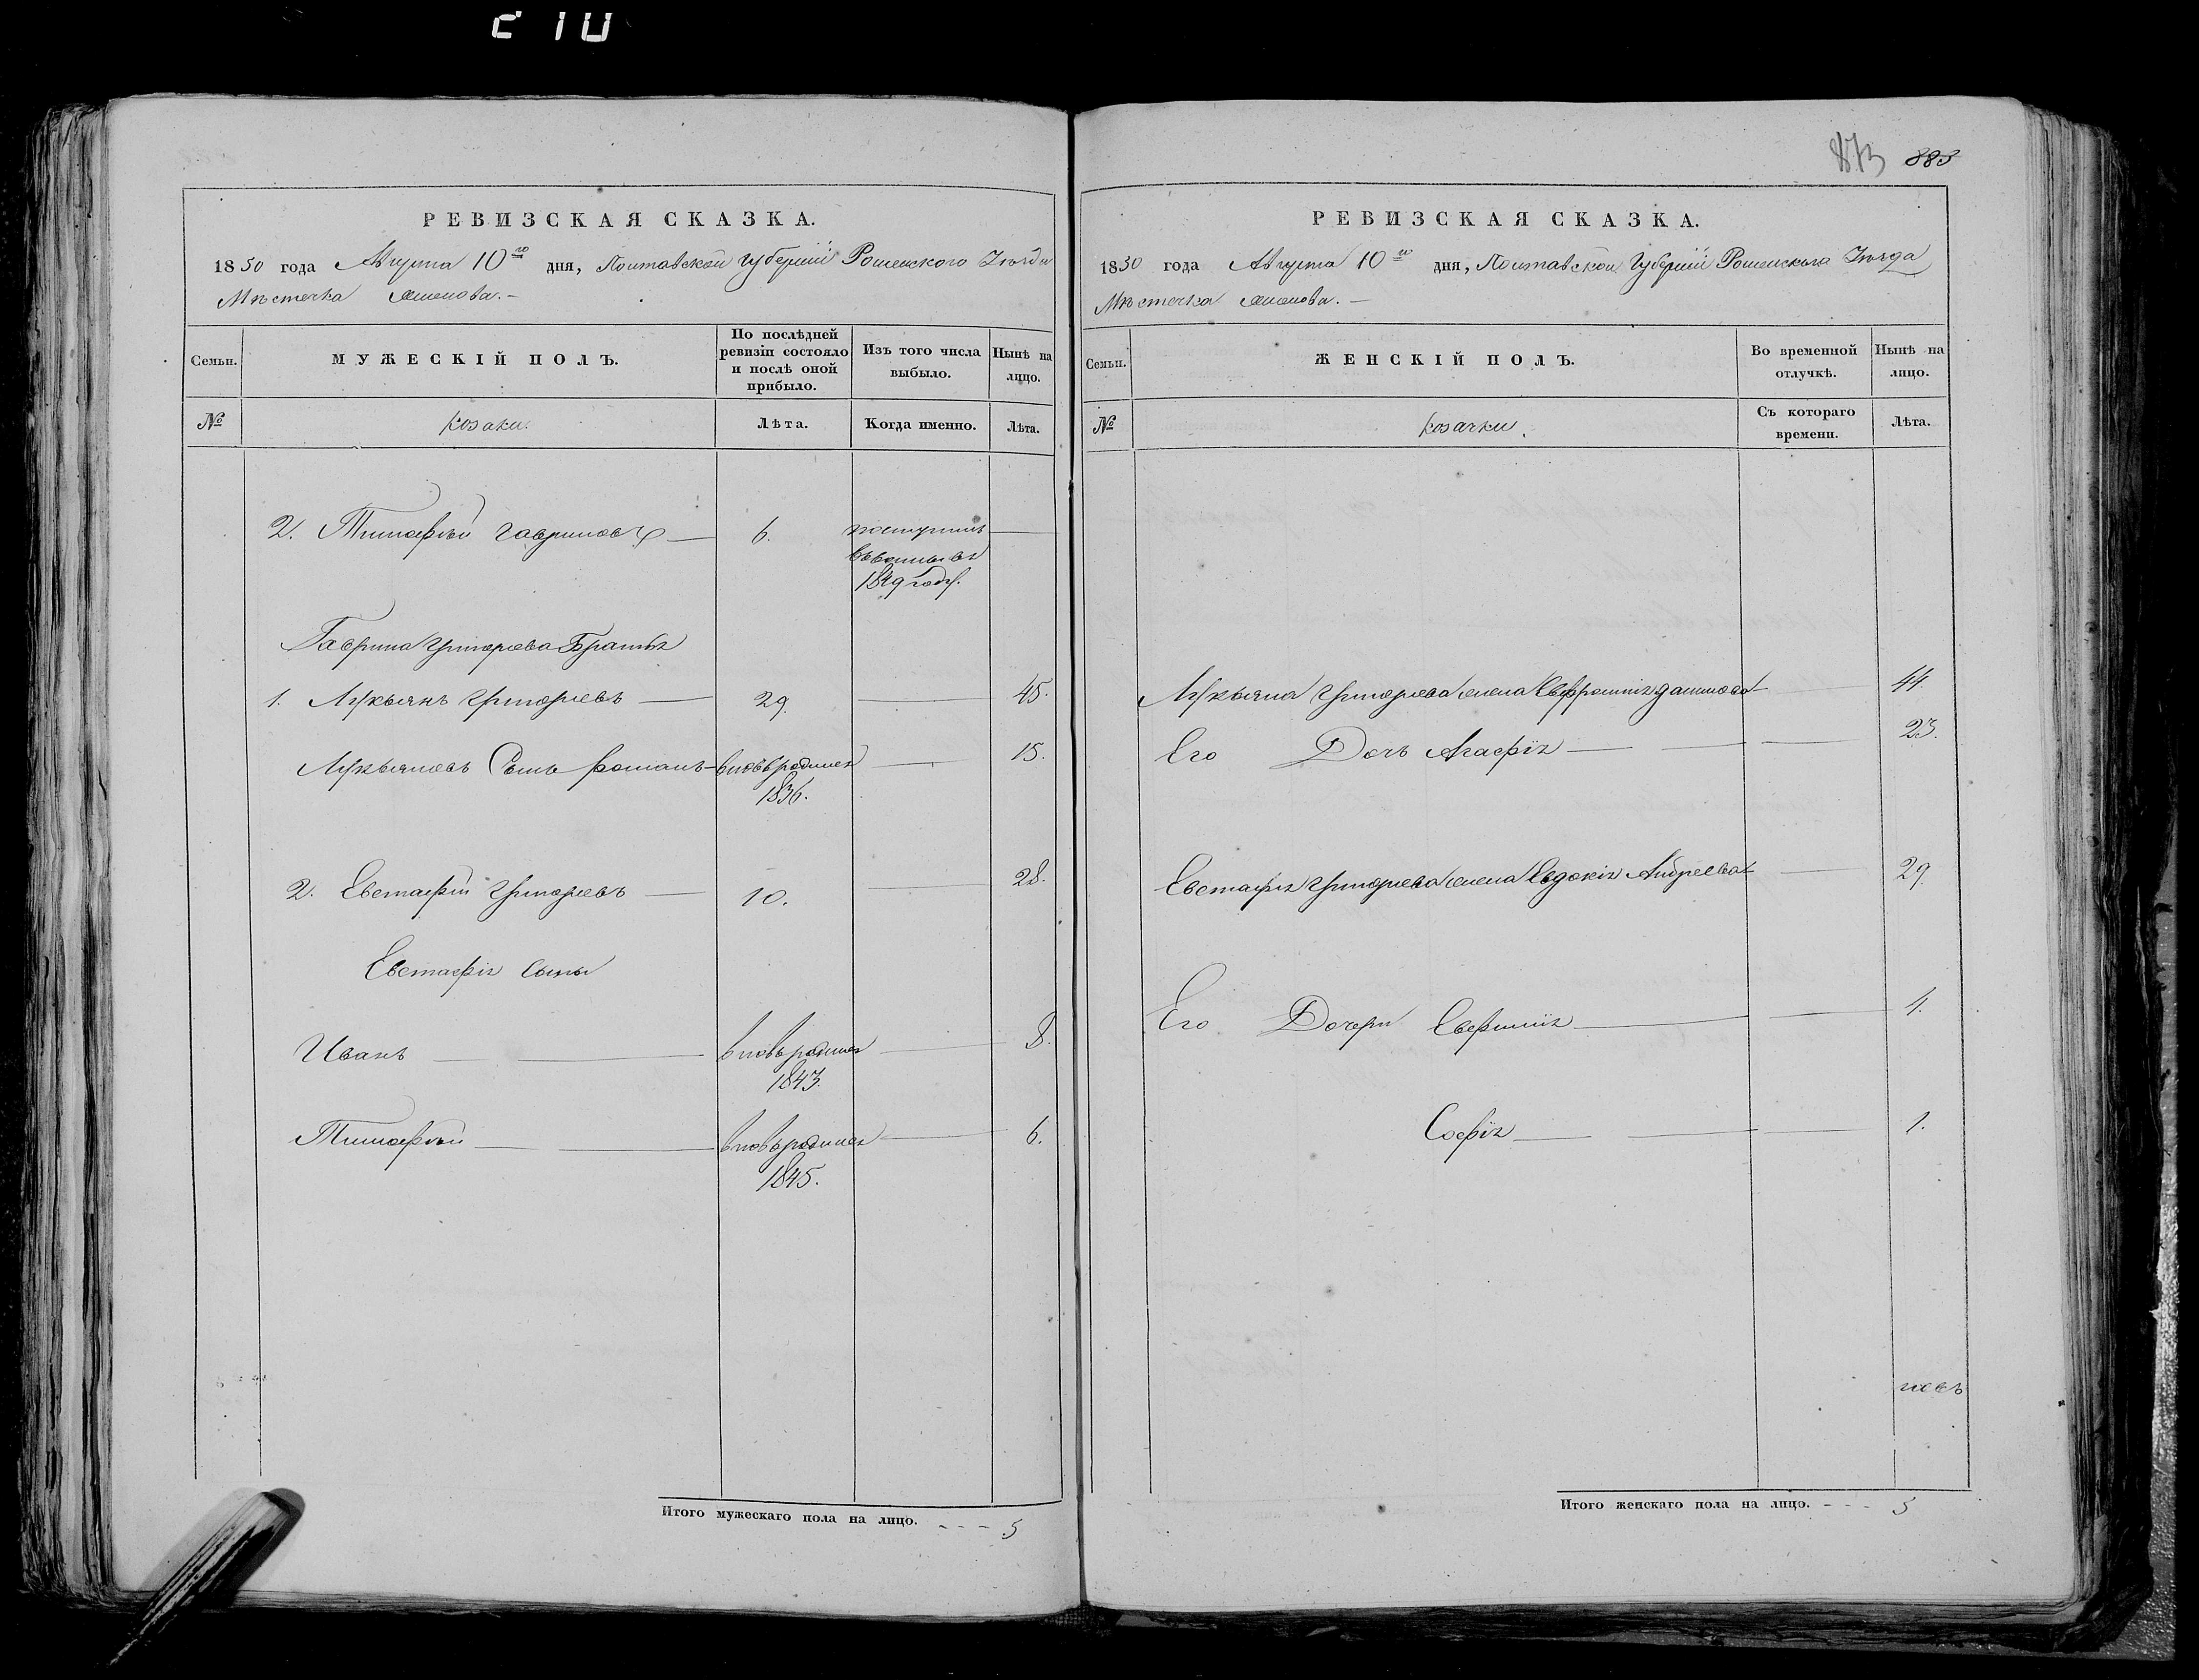 873 883
РЕВИЗСКАЯ СКАЗКА.
1850 года Августа 10го дня, Полтавской Губерніи Роменского Уѣзда
Мѣстечка
МУЖЕСКІЙ ПОЛЪ.
Семьи.
По послѣдней ревизіи состояло и послѣ оной прибыло.
Изъ того числа выбыло.
Нынѣ на лицо.
№
козаки.
Лѣта.
Когда именно.
Лѣта.
2. Тимофѣй Гавриловъ — 6. поступилъ —
1849 году.
Гаврила Григорьева Братья
1. Лукьянъ Григорьевъ — 29. — 45.
Лукьяновъ Сынъ Романъ — вновьродился — 15.
1836.
2. Евстафій Григорьевъ — 10. — 28.
Евстафія сыны
Иванъ — вновьродился — 8.
1843.
Тимофѣй — вновьродился — 6.
1845.
Итого мужескаго пола на лицо. - - - 5
РЕВИЗСКАЯ СКАЗКА.
1850 года Августа 10го дня, Полтавской Губерніи Роменскаго Уѣзда
Мѣстечка
Семьи.
ЖЕНСКІЙ ПОЛЪ.
Во временной отлучкѣ.
Нынѣ на лицо.
№
козачки.
Съ котораго времени.
Лѣта.
Лукьяна Григорьева жена Евфросинія — 44.
Его Дочь Агафія — 23.
Евстафія Григорьева жена Евдокія Андреева — 29.
Его Дочери Евфимія — 4.
Софія — 1.
Итого женскаго пола на лицо. - - - 5